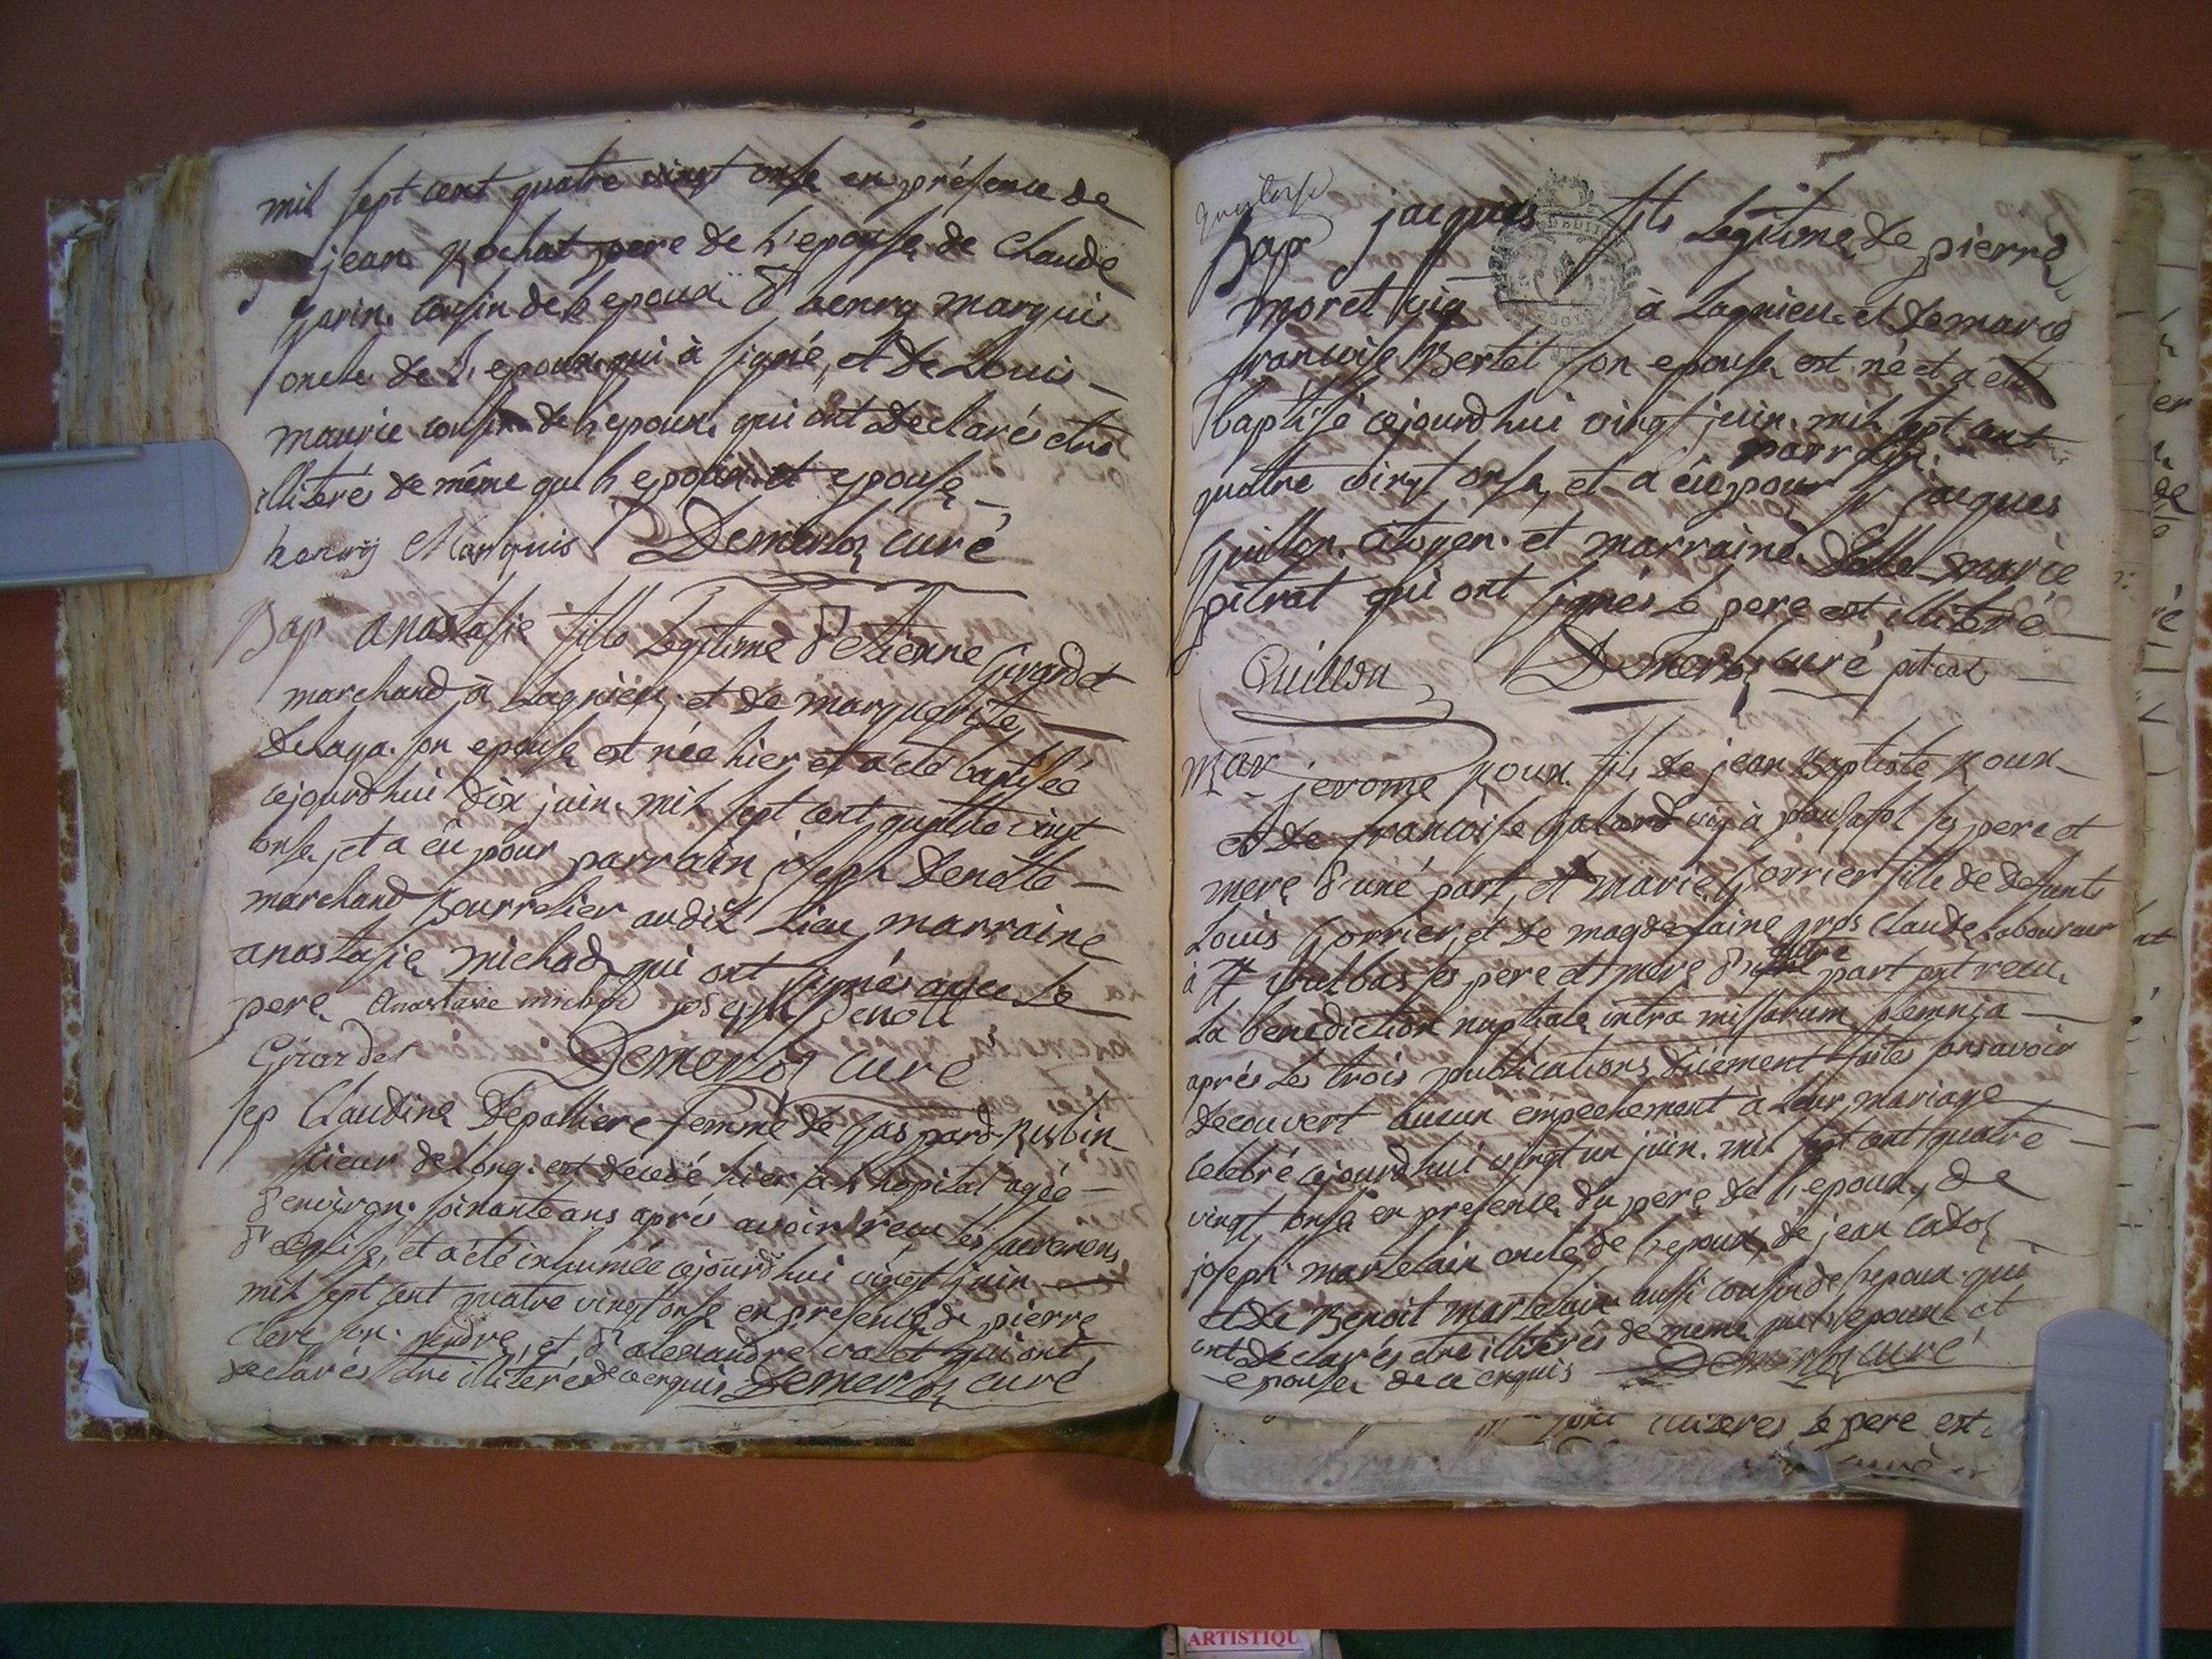 mil sept cent quatre vingt onse en présence de
jean Rochat pere de l'epouse de Claude
Garin cousin de l'epoux d'henry marquis
oncle de l'epoux qui à signé et de Louis
maurie cousin de l'epoux qui ont declarés etre
illiterés de même que l'epoux et epouse
henry Marquis Demerloz curé
Bap anastasie fille legitime d'etienne Girardet
marchand à Lagnieu et de marguerite
Delaga son epouse est née hier et a eté baptisée
cejourdhui dix juin mil sept cent quatre vingt
onse et a eü pour parrain joseph Denolte
marchand Bourrelier audit Lieu marraine
anastasie michad qui ont signés avec le
pere Anastasie michad joseph Denolt
Girardet Demerloz curé
sep Claudine Depalliere femme de Gaspard Rubin
sieur de long est decedé hier à l'hopital agée
d'environ soixante ans aprés avoir recu les sacremens
d'eglise et a été inhumée cejourdhui vingt juin
mil sept cent quatre vingt onse en presence de pierre
Clere son gendre et d'alexandre volet qui ont
declarés etre illiterés de ce enquis Demerloz curé
quatorse
Bap jacques fils legitime de pierre
moret vig à Lagnieu et de marie
francoise Bertet son epouse est né et a eté
baptisé cejourdhui vingt juin mil sept cent
quatre vingt onse et a eü pour parrain sr jacques
Guillon citoyen et marraine Delle marie
pitrat qui ont signés le pere est illiteré
Guillon Demerloz curé pitrat
Mar jerome Roux fils de jean Baptiste Roux
et de francoise Galard vig à ses pere et
mere d'une part et marie Gorrier fille de defunt
Louis Gorrier et de magdelaine gros Claude Laboureur
à St ses pere et mere d'autre part ont recu
la benediction nuptiale intra missarum solemnia
aprés les trois publications düement faites sans avoir
decouvert aucun empechement à leur mariage
celebré cejourdhui vingt un juin mil sept cent quatre
vingt onse en presence du pere de l'epoux, de
joseph martelain oncle de l'epoux, de jean cadoz
et de Benoit martelain aussi cousin de l'epoux qui
ont declarés etre illiterés de meme que l'epoux et
epouse de ce enquis Demerloz curé
illiteres le pere est
ARTISTIQU